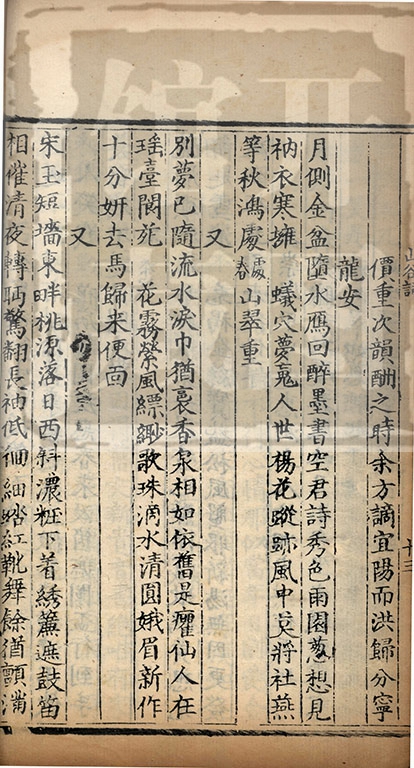 山谷詞
十三
價重次韻酬之時余方謫宜陽而洪歸分寧
龍安
月側金盆墮水鴈回醉墨書空君詩秀色雨園葱想見
衲衣寒擁 蟻穴夢䰟人世楊花蹤跡風中莫將社燕
等秋鴻處處春山翠重
又
別夢已隨流水淚巾猶裛香泉相如依舊是癯仙人在
瑶臺閬苑 花霧縈風縹緲歌珠滴水清圓娥眉新作
十分妍去馬歸来便面
又
宋玉短墻東畔桃源落日西斜濃粧下着綉簾遮鼓笛
相催清夜轉眄驚翻長袖低佪細踏紅靴舞餘猶顫滿